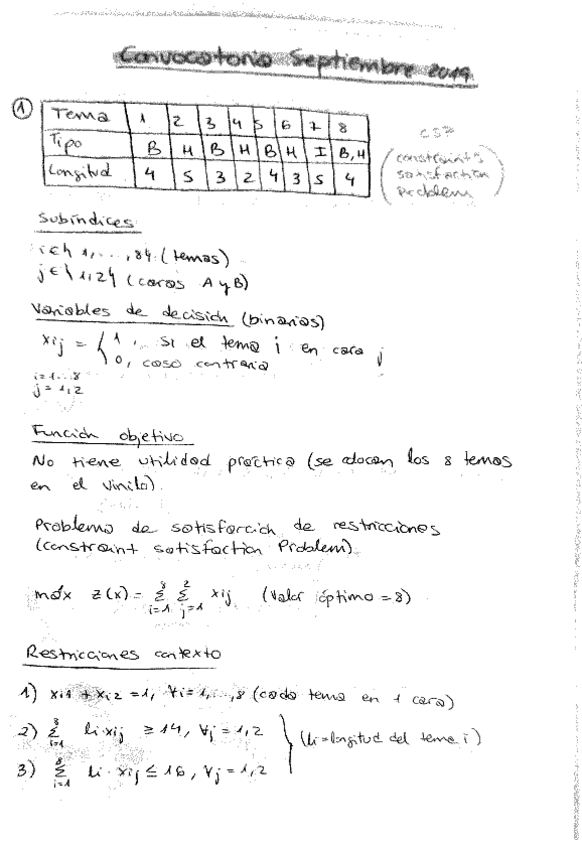 Convocatoria Septiembre 2019
① Tema 1 2 3 4 5 6 7 8
Tipo B H B H B H I B,H
Longitud 4 5 3 2 4 3 5 4
CSP
(constraints
satisfaction
problem)
Subíndices
i ∈ {1,...,8} (temas)
j ∈ {1,2} (caras A y B)
Variables de decisión (binarias)
xij = { 1, si el tema i en cara j
0, caso contrario
i=1...8
j=1,2
Función objetivo
No tiene utilidad práctica (se colocan los 8 temas
en el vinilo).
Problema de satisfacción de restricciones
(constraint satisfaction Problem).
máx z(x) = Σ(i=1..8) Σ(j=1..2) xij (Valor óptimo = 8)
Restricciones contexto
1) xi1 + xi2 = 1, ∀i=1,...,8 (cada tema en 1 cara)
2) Σ(i=1..8) li·xij ≥ 14, ∀j=1,2
(li = longitud del tema i)
3) Σ(i=1..8) li·xij ≤ 16, ∀j=1,2